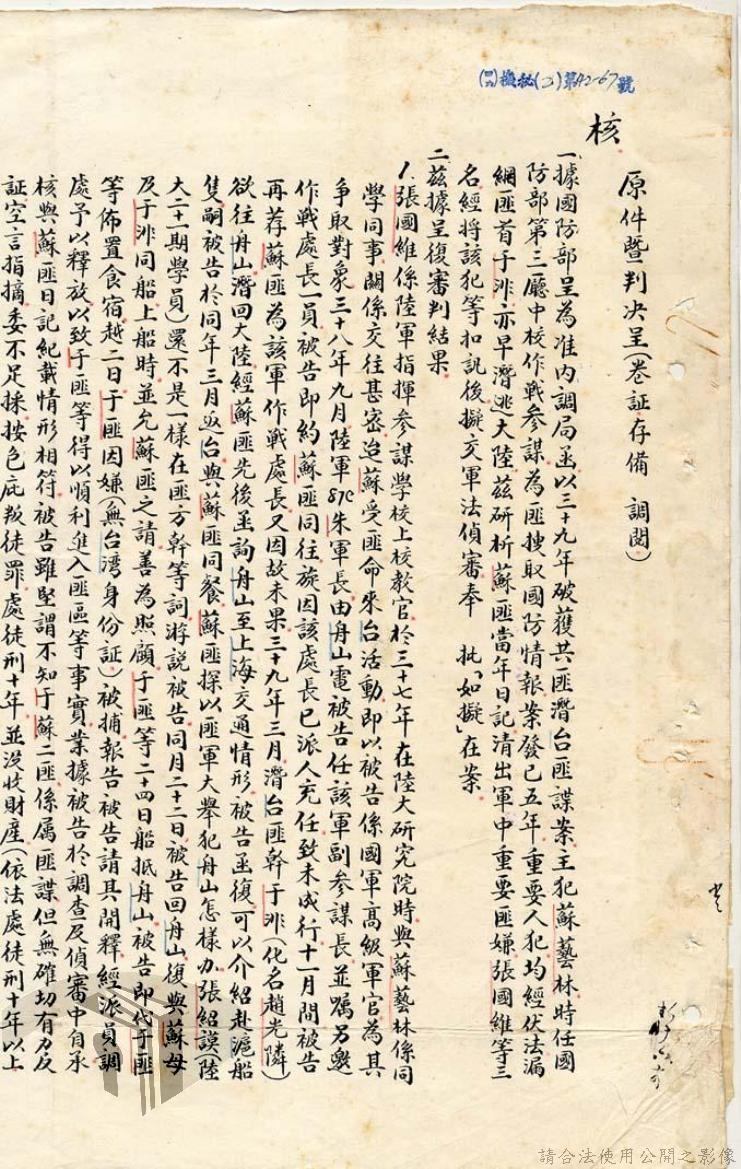 (四二)機秘(乙)第42-67號
核
原件暨判決呈(卷証存備 調閱)
一據國防部呈為准內調局函以三十九年破獲共匪潛台匪諜案主犯蘇藝林時任國
防部第三廳中校作戰參謀為匪搜取國防情報案發已五年重要人犯均經伏法漏
網匪首于洣亦早潛逃大陸茲研析蘇匪當年日記清出軍中重要匪嫌張國維等三
名經將該犯等扣訊後擬交軍法偵審奉 批「如擬」在案
二茲據呈復審判結果
1.張國維係陸軍指揮參謀學校上校教官於三十七年在陸大研究院時與蘇藝林係同
學同事關係交往甚密迨蘇受匪命來台活動即以被告係國軍高級軍官為其
爭取對象三十八年九月陸軍87C朱軍長由舟山電被告任該軍副參謀長並囑另邀
作戰處長一員被告即約蘇匪同往旋因該處長已派人充任致未成行十一月間被告
再荐蘇匪為該軍作戰處長又因故未果三十九年三月潛台匪幹于洣(化名趙光隣)
欲往舟山潛回大陸經蘇匪先後函詢舟山至上海交通情形被告函復可以介紹赴滬船
隻嗣被告於同年三月返台與蘇匪同餐蘇匪探以匪軍大舉犯舟山怎樣办張紹謨(陸
大二十一期學員)還不是一樣在匪方幹等詞游說被告同月二十二日被告回舟山復與蘇母
及于洣同船上船時並允蘇匪之請善為照顧于匪等二十四日船抵舟山被告即代于匪
等佈置食宿越二日于匪因嫌(無台灣身份証)被捕報告被告請其開釋經派員調
處予以釋放以致于匪等得以順利進入匪區等事實業據被告於調查及偵審中自承
核與蘇匪日記紀載情形相符被告雖堅謂不知于蘇二匪係属匪諜但無確切有力反
証空言指摘委不足採按包庇叛徒罪處徒刑十年並没收財產(依法處徒刑十年以上
請合法使用公開之影像